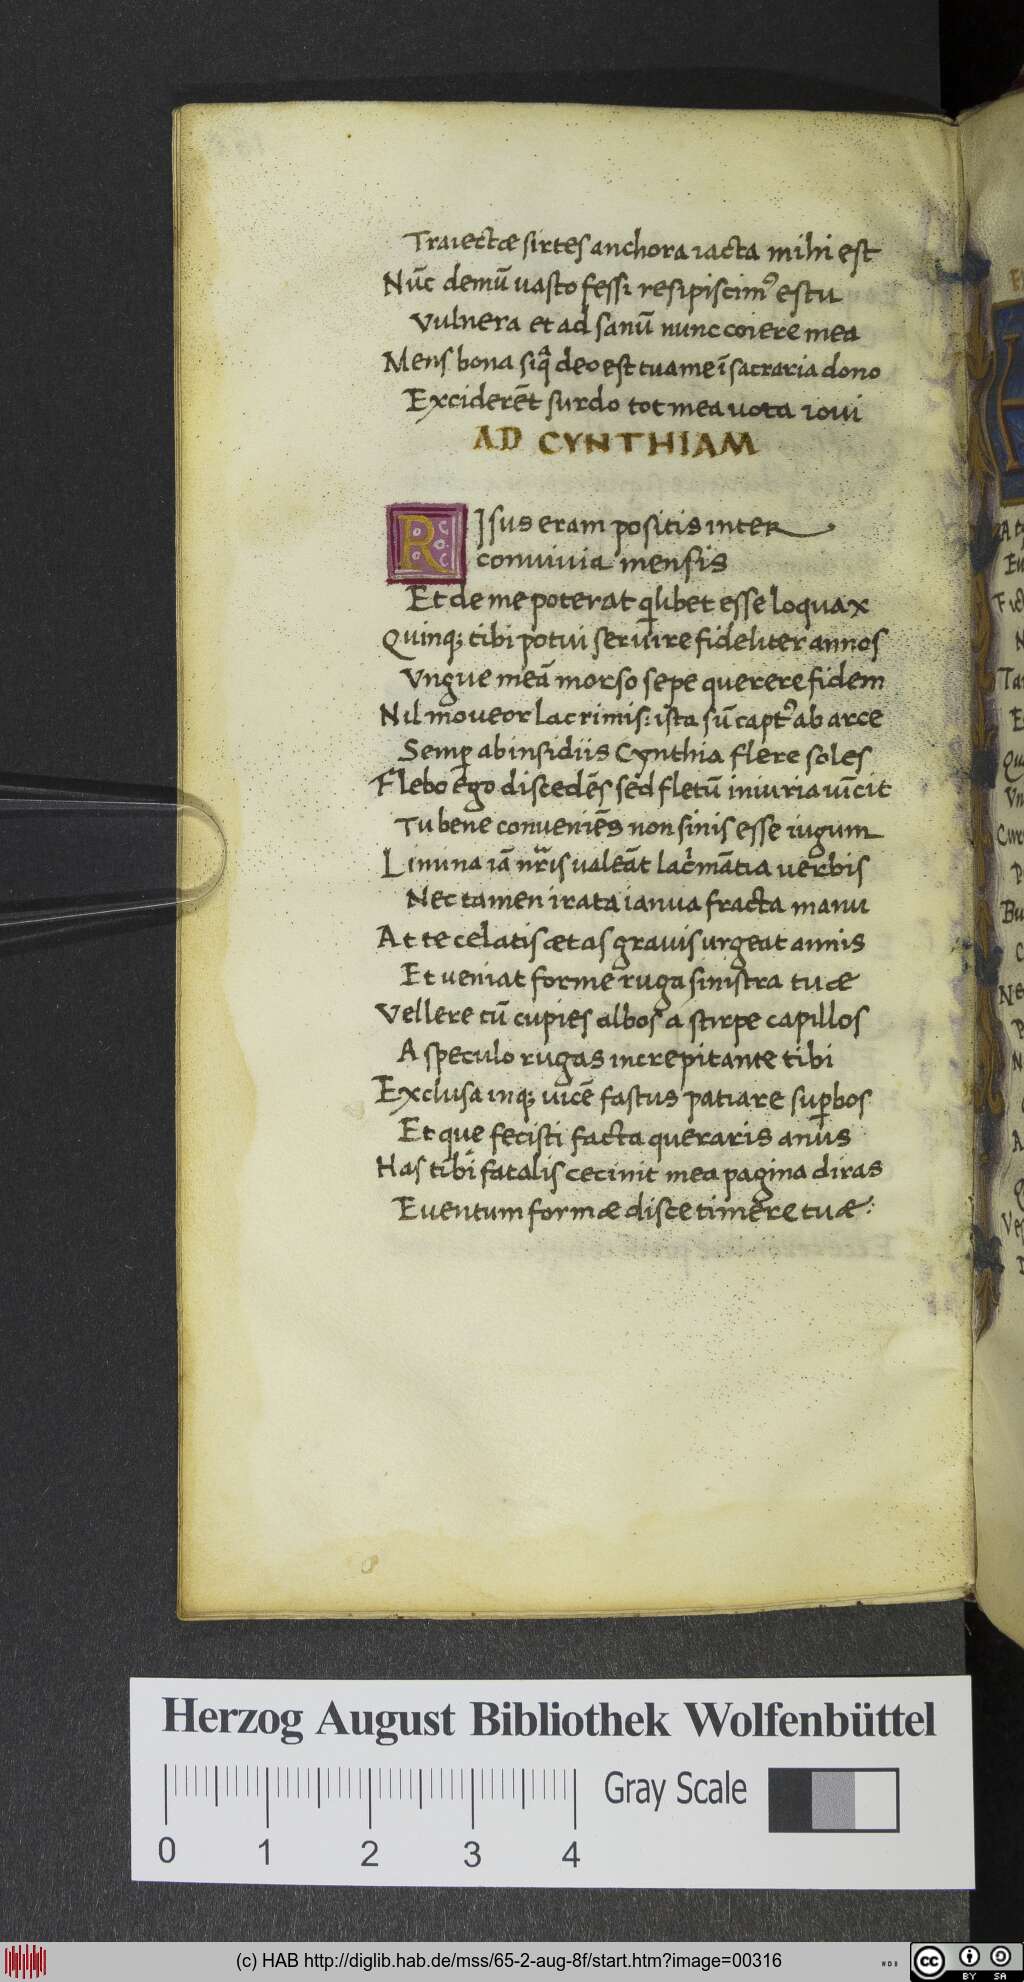 Traiectæ sirtes anchora iacta mihi est
Nūc demū uasto fessi resipiscim⁹ estu
Vulnera et ad sanū nunc coiere mea
Mens bona siqᵃ deo est tua me ī sacraria dono
Exciderēt surdo tot mea uota ioui
AD CYNTHIAM
RIsus eram positis inter
conuiuia mensis
Et de me poterat qlibet esse loquax
Quinq; tibi potui seruire fideliter annos
Vngue meā morso sepe querere fidem
Nil moueor lacrimis: ista sū capt⁹ ab arce
Semp ab insidiis Cynthia flere soles
Flebo ego discedēs sed fletū iniuria uīcit
Tu bene conueniēs non sinis esse iugum
Limina iā nr̄is ualeāt lacⁱmātia uerbis
Nec tamen irata ianua fracta manu
At te celatis ætas grauis urgeat annis
Et ueniat forme ruga sinistra tuæ
Vellere cū cupies albos a stirpe capillos
A speculo rugas increpitante tibi
Exclusa inq; uicē fastus patiare supbos
Et que fecisti facta queraris anus
Has tibi fatalis cecinit mea pagina diras
Euentum formæ disce timere tuæ:
Herzog August Bibliothek Wolfenbüttel
Gray Scale
0 1 2 3 4
(c) HAB http://diglib.hab.de/mss/65-2-aug-8f/start.htm?image=00316
cc BY SA